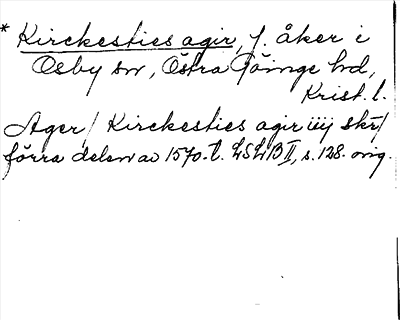 * Kirckesties agir, f. åker i
Osby sn, Östra Göinge hd,
Krist. l.
Ager / Kirckesties agir iiij skr /
förra delen av 1570-t. LSLB II, s. 128. orig.